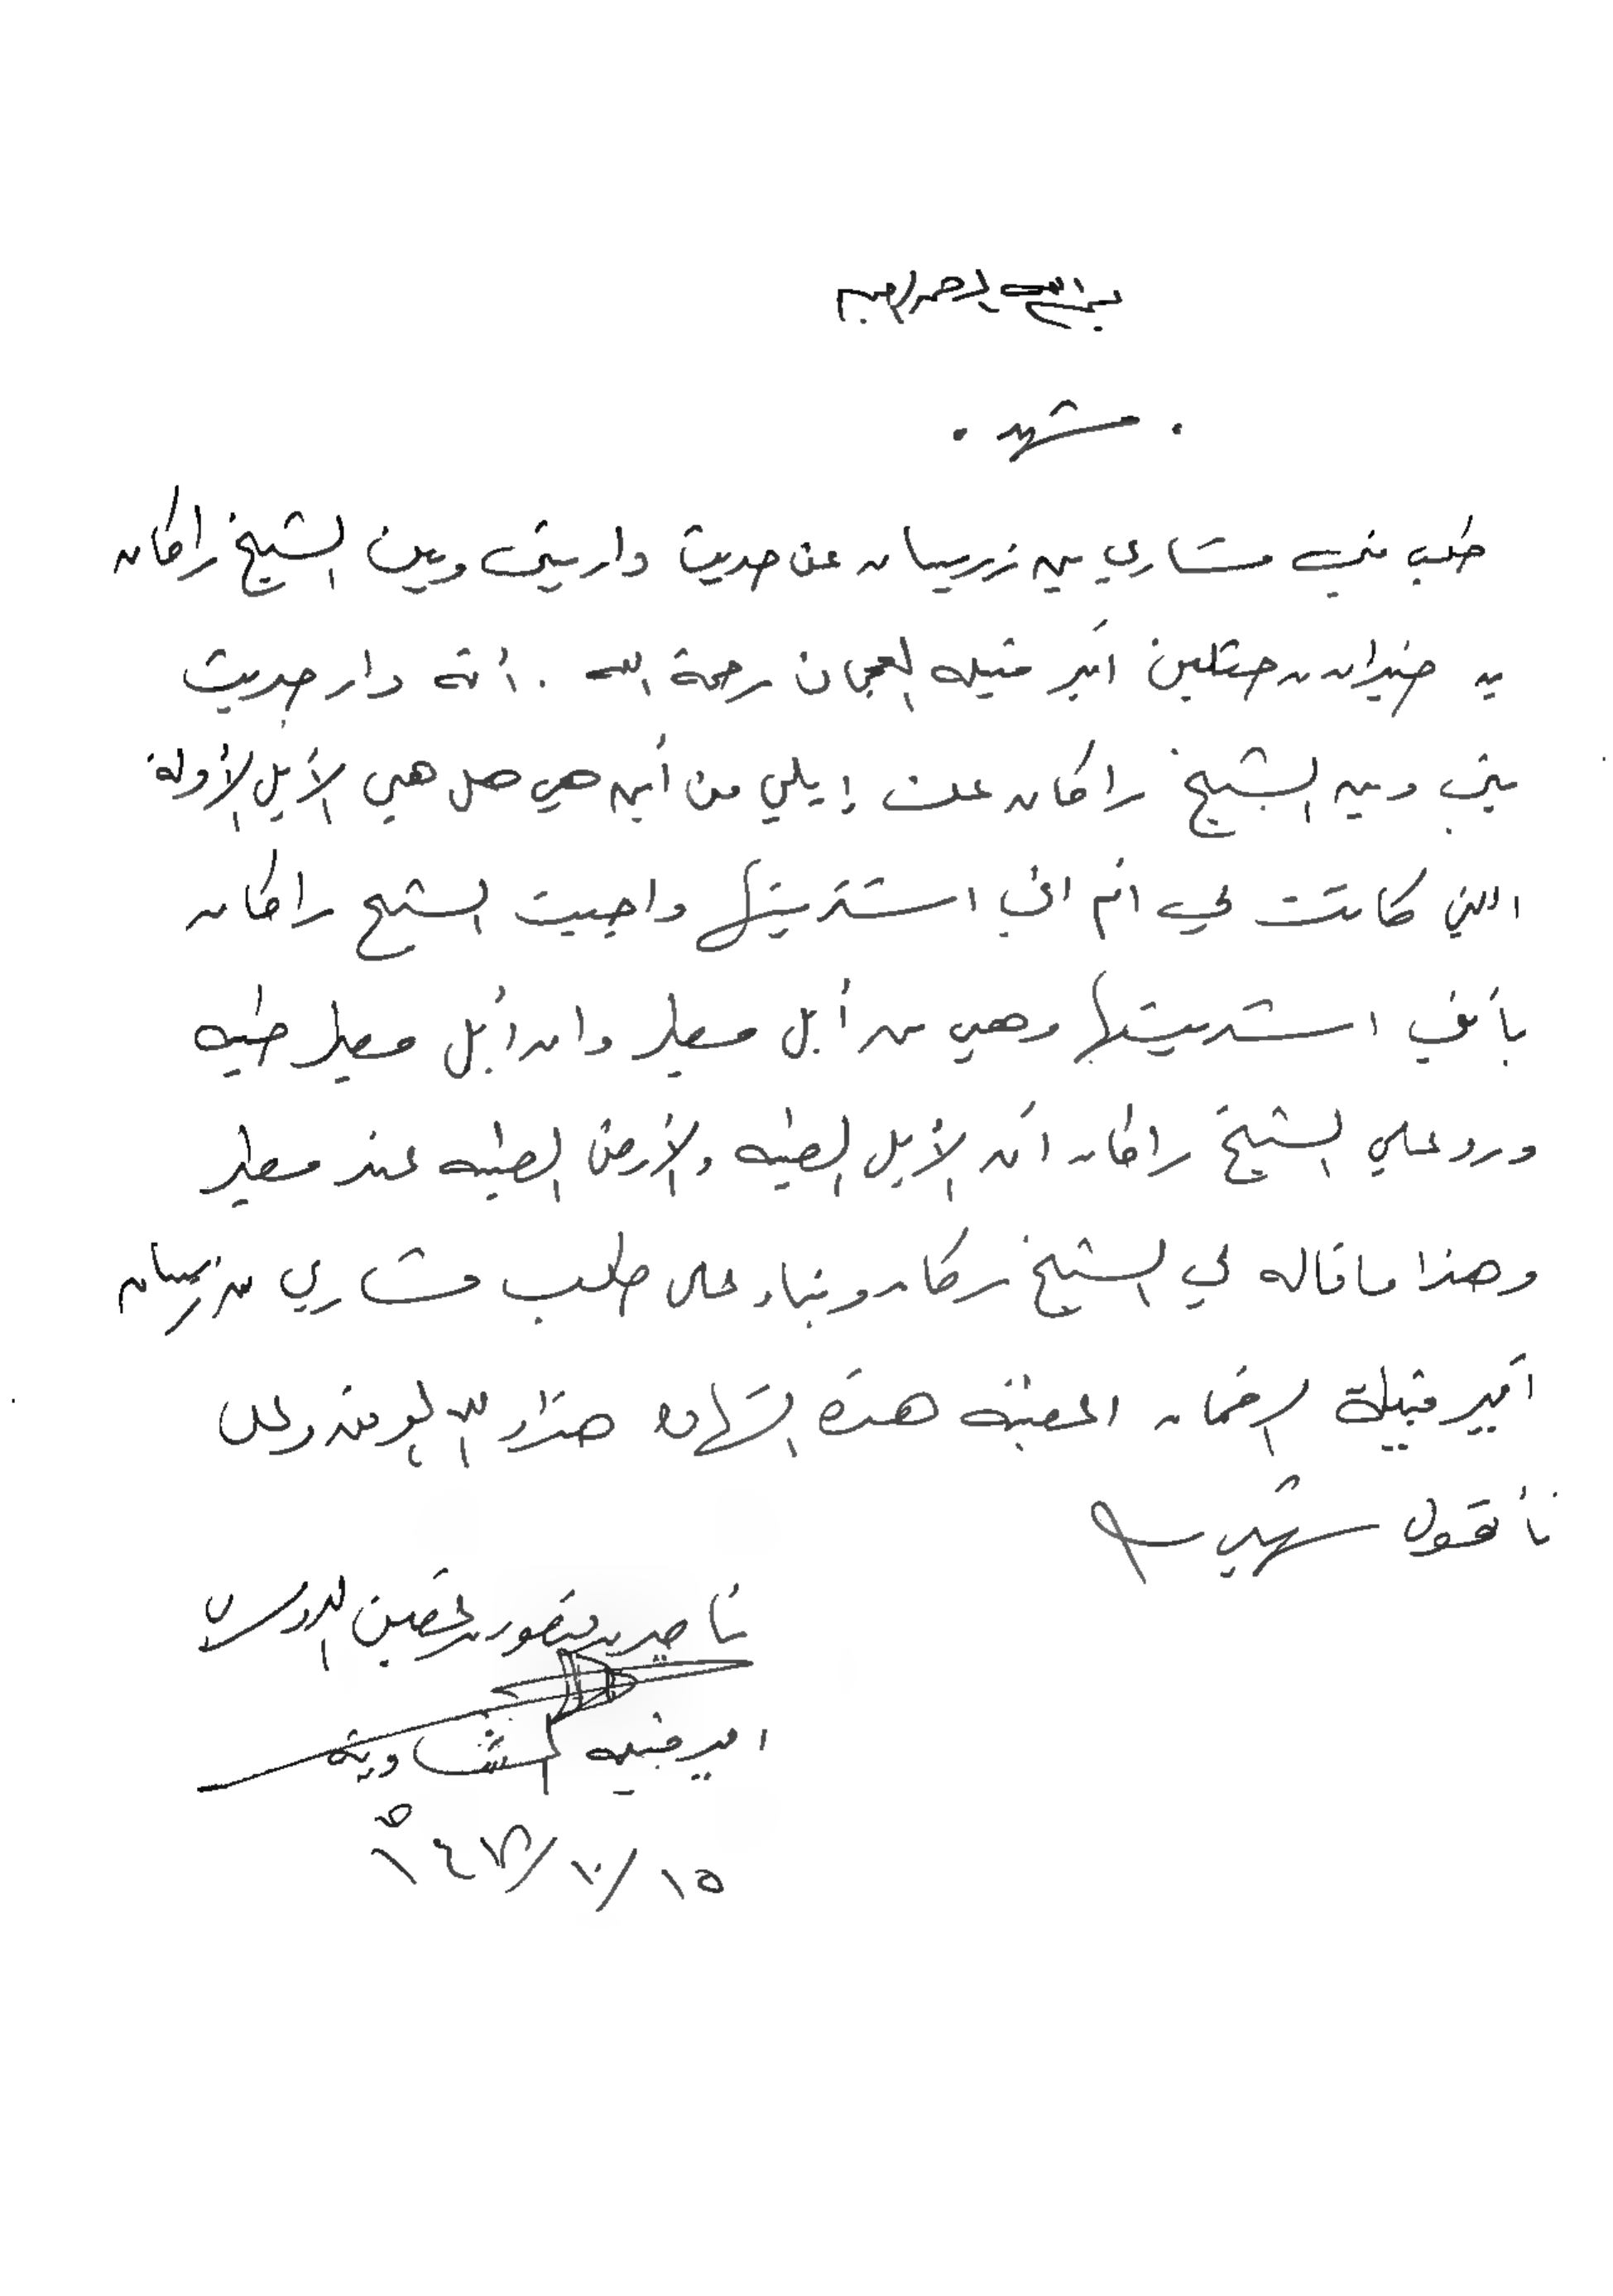 بسم الله الرحمن الرحيم
. مشهد .
طلب مني مشاري بن زريبان عن حديث دار بيني وبين الشيخ راكان
بن حثلين أمير قبيله العجمان رحمة الله . أنه دار حديث
بيني وبين الشيخ راكان عن إبلي من أين هي هل هي الأبل الأولة
الذي كانت لي ام اني اشتريتها واجبت الشيخ راكان
بأنني اشتريتها وهي من أبل مطير وان أبل مطير طيبه
ورد علي الشيخ راكان ان الأبل الطيبه والأرض الطيبه عند مطير
وهذا ما قاله لي الشيخ ركان وبناء على طلب مشاري بن زريبان
أمير قبيلة الرخمان اعطيته هذه الشهاده هذا والله الموفق وعلى
ما نقول شهيد
ناصر بن منصور بن الدوسري
امير قبيله
١٥/١٠/ هـ